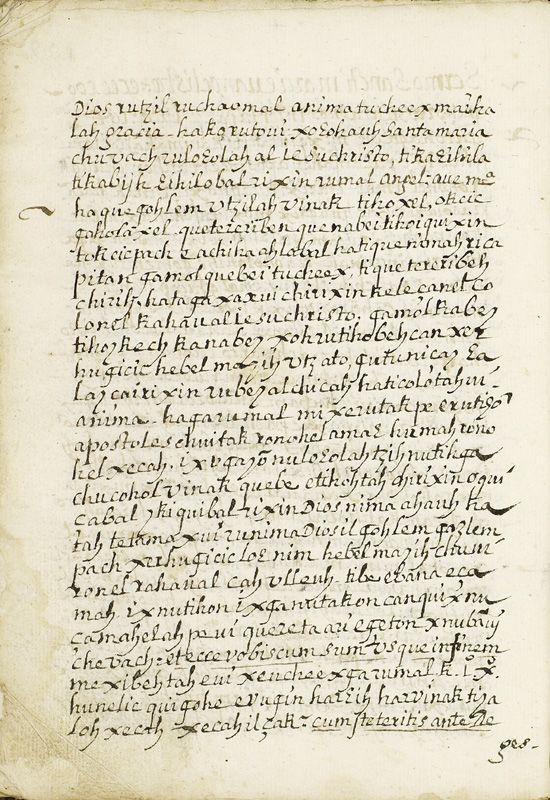 Dios rutzil ruchaomal anima tucheex maika
lah gracia. hakg rutovi xoLohauh Santa maria
chuvach ruloLolah al iesuchristo, tikaLihila
tikabijk Lihilobal rixin rumal Angel: aue mª
ha que gohlem vtzilah vinak tihoxel, oticic
gahola xel. quetereriben que nabei tihoiquixin
toticic pach Lachihaahlabal hatiquenimah rica
pitan gamol quebei tucheex, tiquetereribeh
chirih. hata gaxaxvi chirixin kelecanel co
lonel kahaual iesuchristo. gamol kabey
tihoykech kanabey xohrutihobeh can xer
hugicic hebel mayih vtz ato, qutunicay La
lay cairixin rubeyal chicah haticolotahvi
anima. hagarumal mixerutak pe erutigoⁿ
apostoles chuitak ronohel amaL humah rono
hel xecah. ix vgayoⁿ nuloLolah tzih nutihga
chucohol vinak quebe etihohtah chirixin oqui
cabal ykiquibal rixin Dios nima ahauh ha
tah tetama xui runima Dios il gohlem gazlem
pach xrrhugicic loLnim hebel mayih ctuni
ronel rahaual cah vlleuh. tibe ebana eca
mah. ix nutihon ixganutakon canquix nu
camahelah pe vi quereta ari egeton xnubaⁿ yⁿ
chevach: et ecce vobiscum sum vsque in finem
mexibehtah evi xeucheexgarumal k. I. X.
hunelic quigohe evugin harzih harvinak tiya
loh xecah xecahil Lak: cum steteritis ante Re
ges-